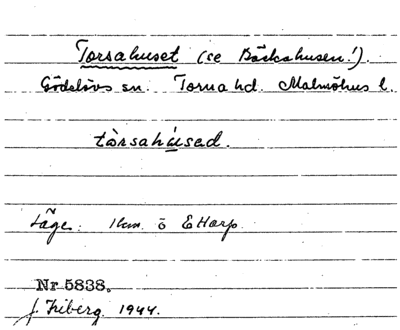 Torsahuset (se Bäckahusen!).
Gödelövs sn. Torna hd. Malmöhus l.
tòrsahúsad.
Läge: 1 km. ö Ettarp.
Nr 5838.
J. Friberg 1944.